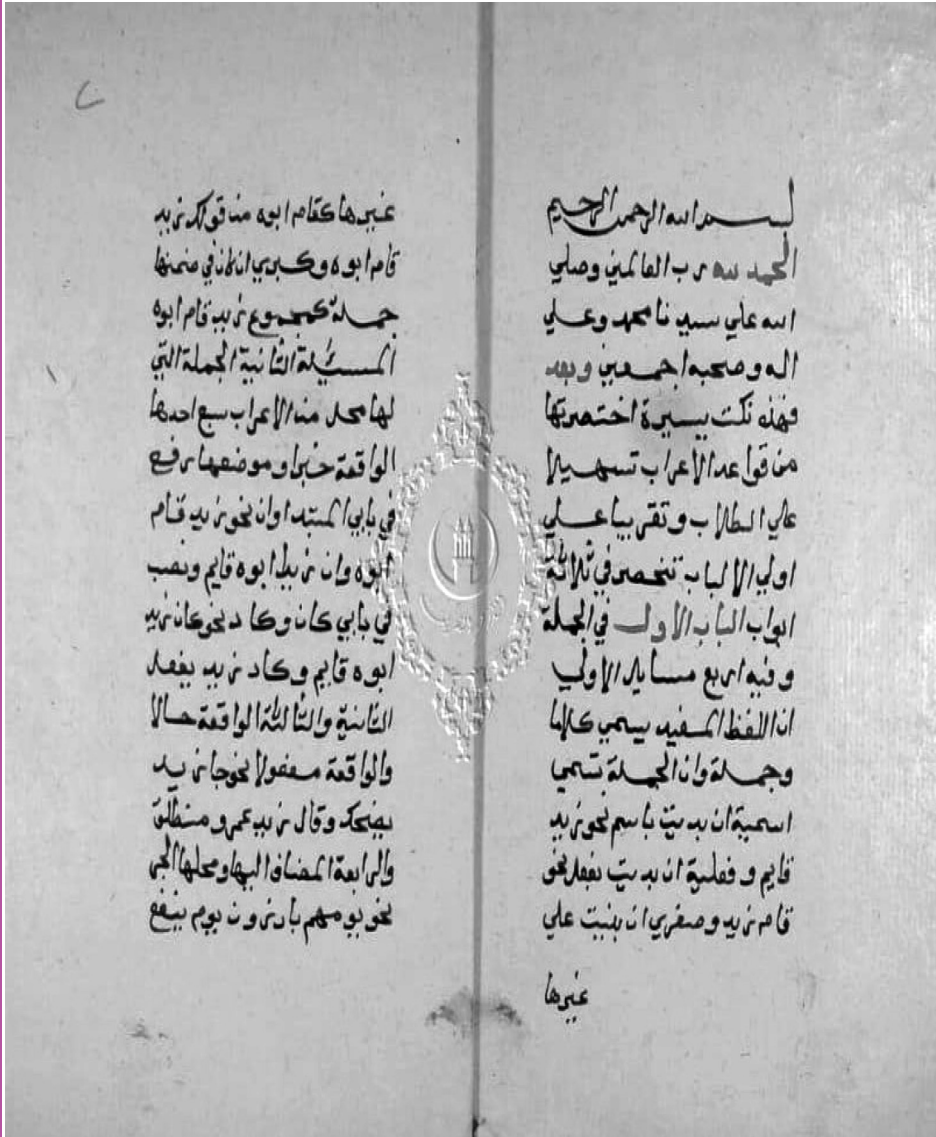 بسم الله الرحمن الرحيم
الحمد لله رب العالمين وصلي
الله علي سيدنا محمد وعلي
اله وصحبه اجمعين وبعد
فهذه نكت يسيرة اختصرتها
من قواعد الاعراب تسهيلا
علي الطلاب وتقريبا علي
اولي الالباب تنحصر في ثلاثة
ابواب الباب الاول في الجملة
وفيه اربع مسايل الاولي
ان اللفظ المفيد يسمي كلاما
وجملة وان الجملة تسمي
اسمية ان بديت باسم نحو زيد
قايم وفعلية ان بديت بفعل نحو
قام زيد وصغري ان بنيت علي
غيرها
غيرها كقام ابوه من قولك زيد
قام ابوه وكبري ان كان في ضمنها
جملة كمجموع زيد قام ابوه
المسئلة الثانية الجملة التي
لها محل من الاعراب سبع احدها
الواقعة خبرا وموضعها رفع
في بابي المبتدا وان نحو زيد قام
ابوه وان زيدا ابوه قايم ونصب
في بابي كان وكاد نحو كان زيد
ابوه قايم وكاد زيد يفعل
الثانية والثالثة الواقعة حالا
والواقعة مفعولا نحو جا زيد
يضحك وقال زيد عمرو منطلق
والرابعة المضاف اليها ومحلها الجر
نحو يوم هم بارزون يوم ينفع